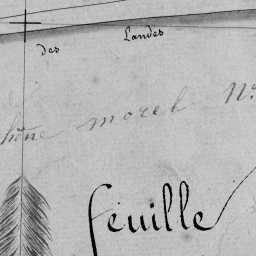 des Landes
morel N
feuille